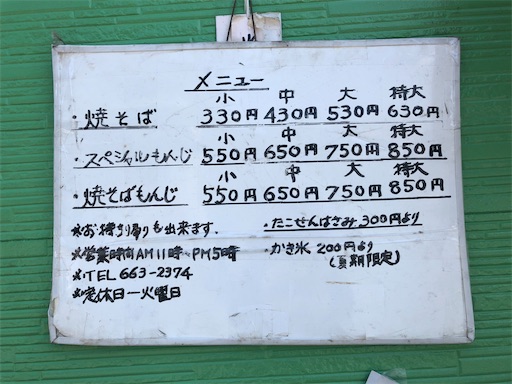 メニュー
小 中 大 特大
・焼そば 330円 430円 530円 630円
小 中 大 特大
・スペシャルもんじ 550円 650円 750円 850円
小 中 大 特大
・焼そばもんじ 550円 650円 750円 850円
※お持ち帰りも出来ます.
・たこせんはさみ 300円より
※営業時間AM11時〜PM5時
・かき氷 200円より
(夏期限定)
※TEL 663-2374
※定休日ー火曜日